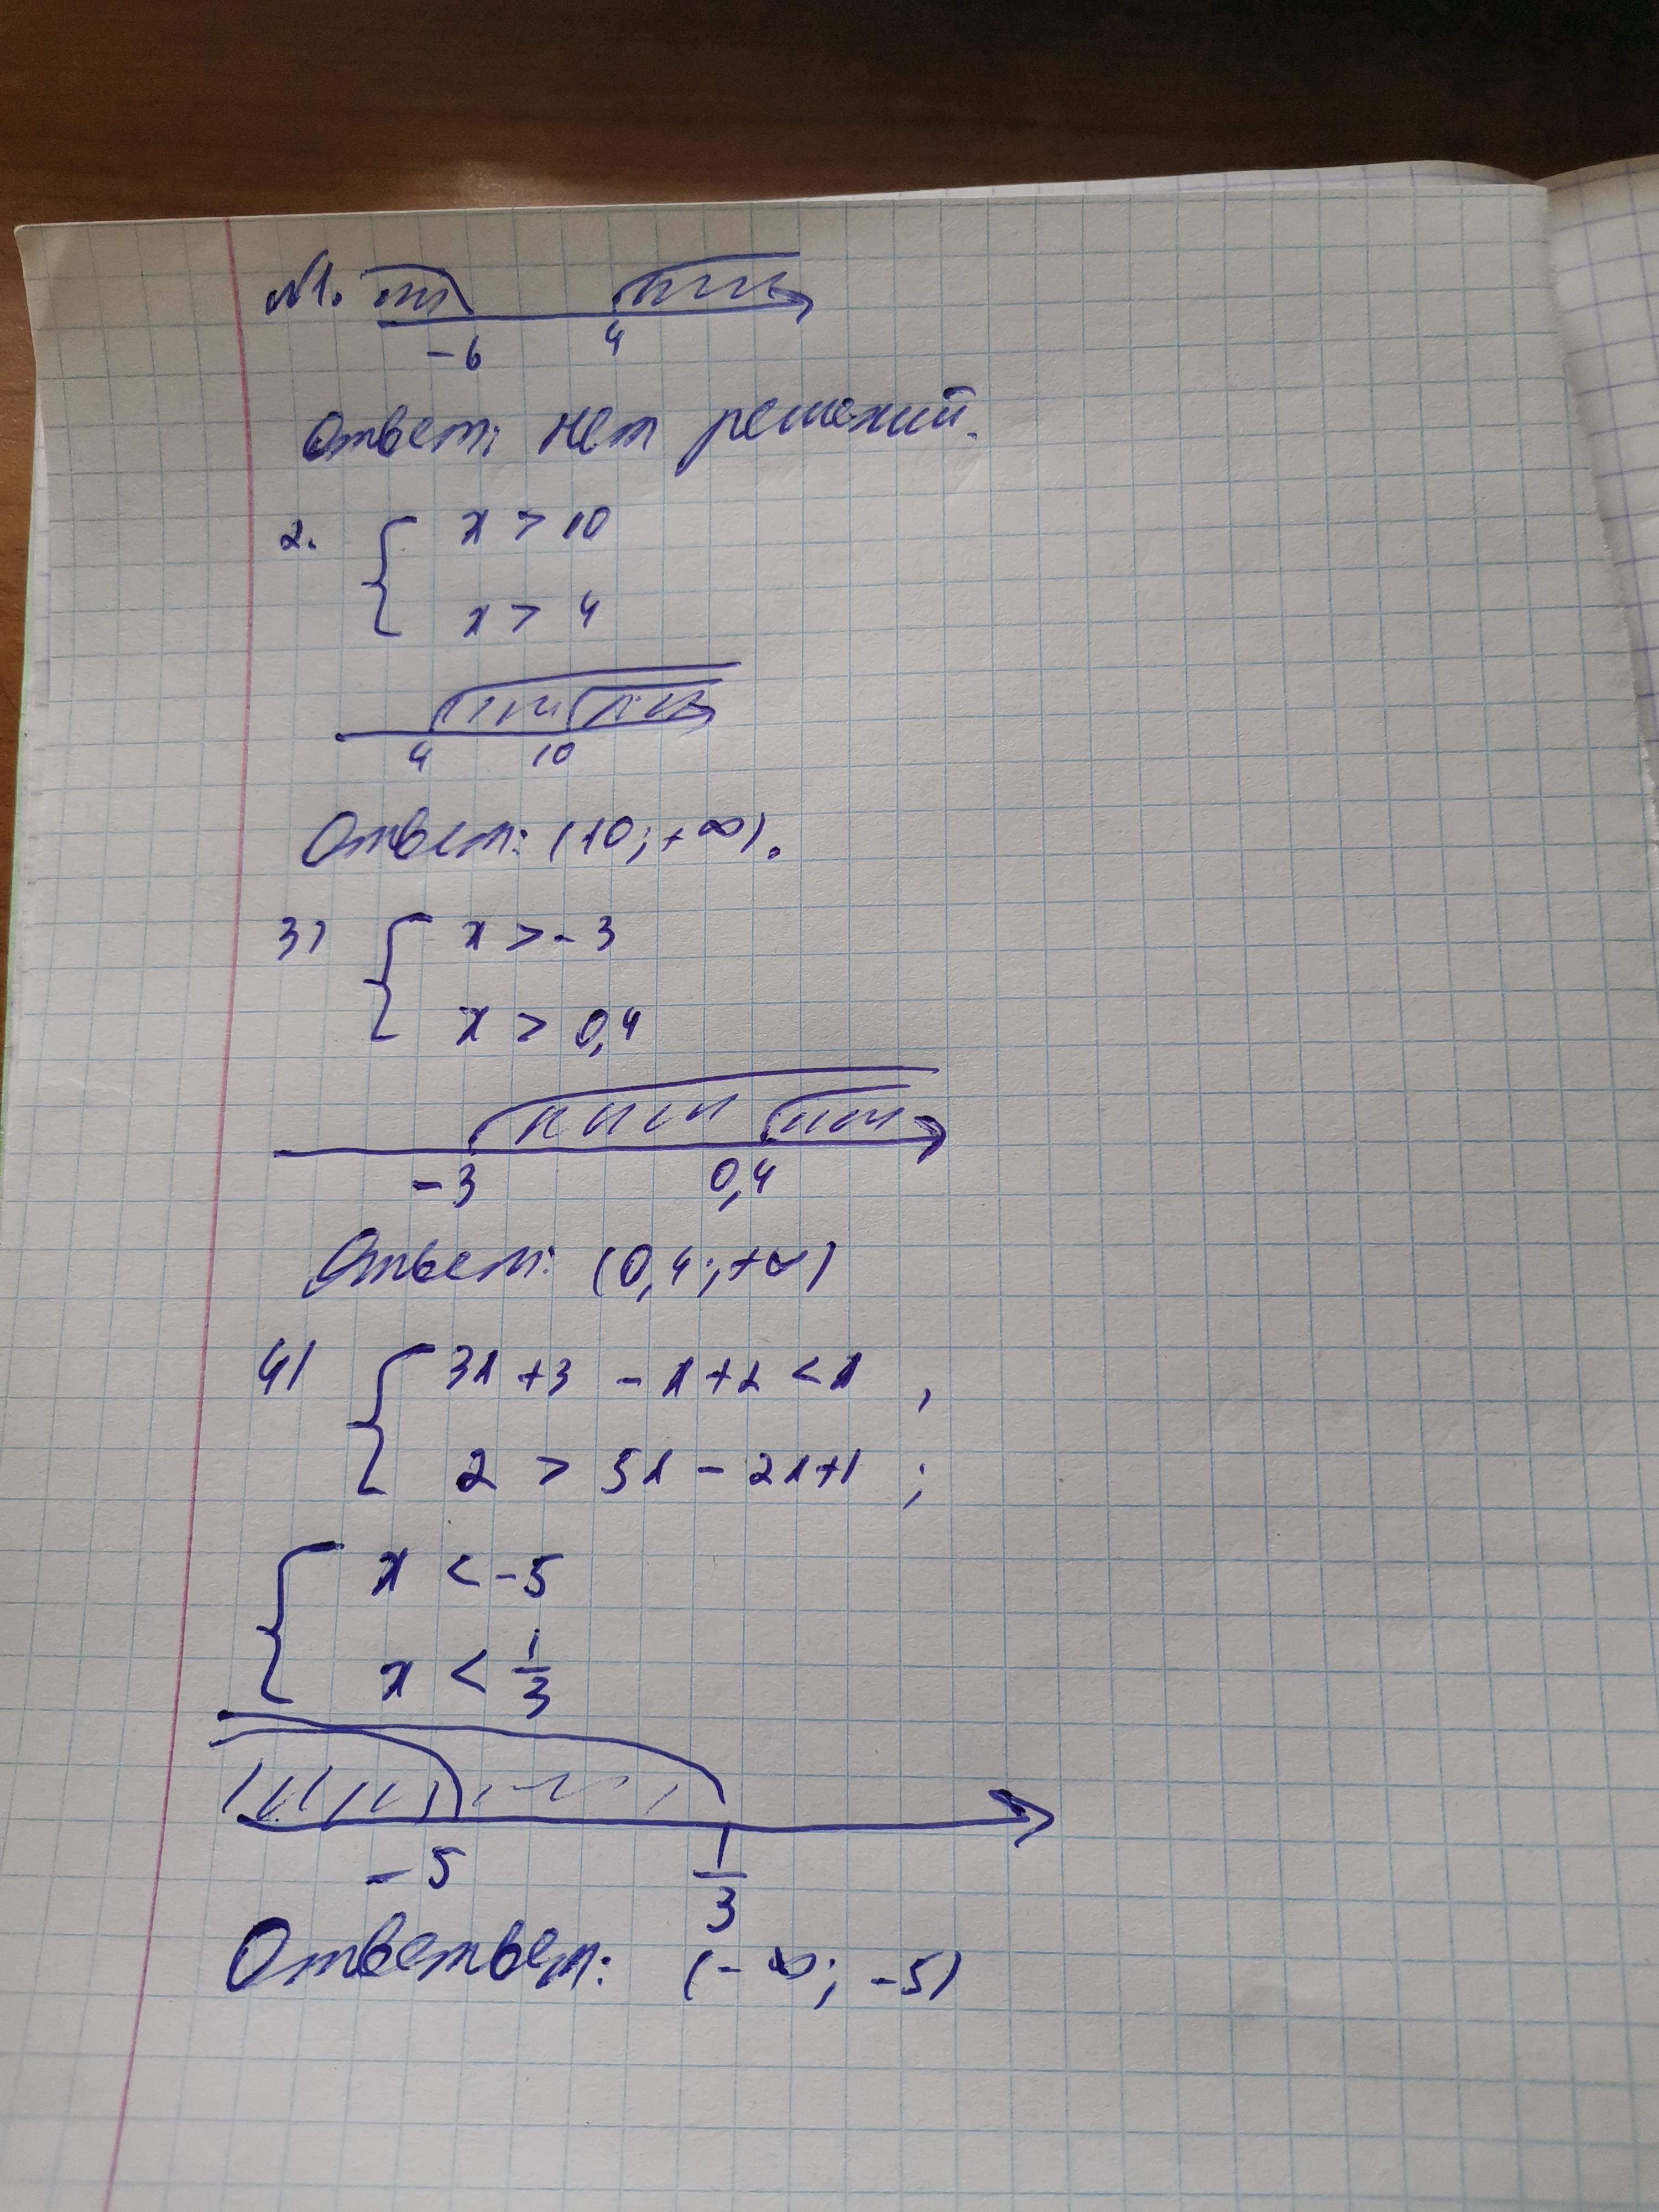 №1.
-6 4
Ответ: нет решений.
2. { x > 10
x > 4
4 10
Ответ: (10; +∞).
3) { x > -3
x > 0,4
-3 0,4
Ответ: (0,4; +∞)
4) { 3x + 3 - x + 2 < x ,
2 > 5x - 2x + 1 ;
{ x < -5
x < 1/3
-5 1/3
Ответвет: (-∞; -5)